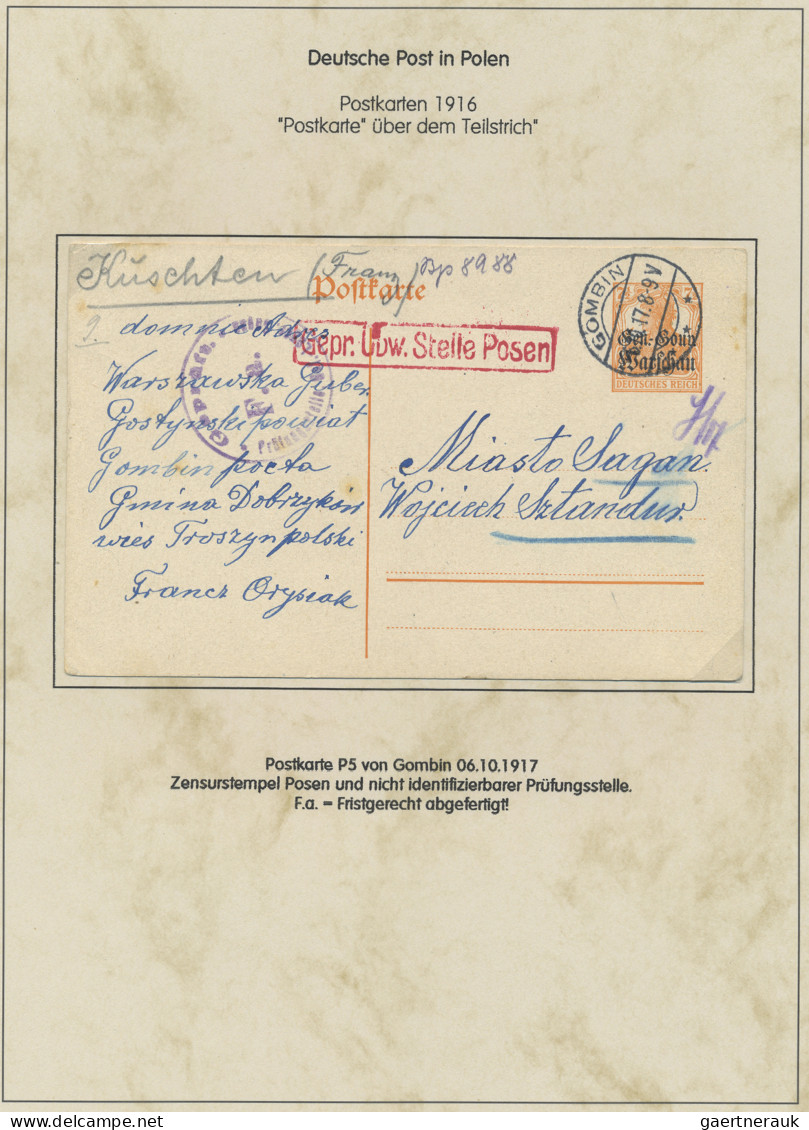 Deutsche Post in Polen
Postkarten 1916
"Postkarte" über dem Teilstrich"
Küschten (Franz) Bp 8988
Postkarte
GOMBIN
17.8-9V
7½
Gen.-Gouv.
Warschau
DEUTSCHES REICH
Gepr. Übw. Stelle Posen
F. a.
domnie
Warszawska Guber
Gostynski powiat
Gombin pocta
Gmina Dobrzykow
wies Troszyn polski
Francz Orysiak
Miasto Sagan.
Wojciech Sztandur.
Postkarte P5 von Gombin 06.10.1917
Zensurstempel Posen und nicht identifizierbarer Prüfungsstelle.
F.a. = Fristgerecht abgefertigt!
gaertnerauk